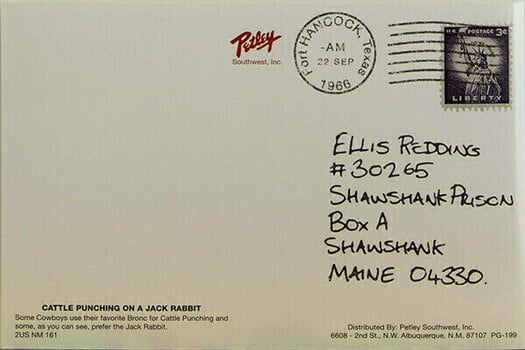 Petley
Southwest, Inc.
Fort HANCOCK, Texas
-AM
22 SEP
1966
U.S. POSTAGE 3¢
LIBERTY
ELLIS REDDING
#30265
SHAWSHANK PRISON
BOX A
SHAWSHANK
MAINE 04330.
CATTLE PUNCHING ON A JACK RABBIT
Some Cowboys use their favorite Bronc for Cattle Punching and
some, as you can see, prefer the Jack Rabbit.
2US NM 161
Distributed By: Petley Southwest, Inc.
6608 - 2nd St., N.W. Albuquerque, N.M. 87107 PG-199